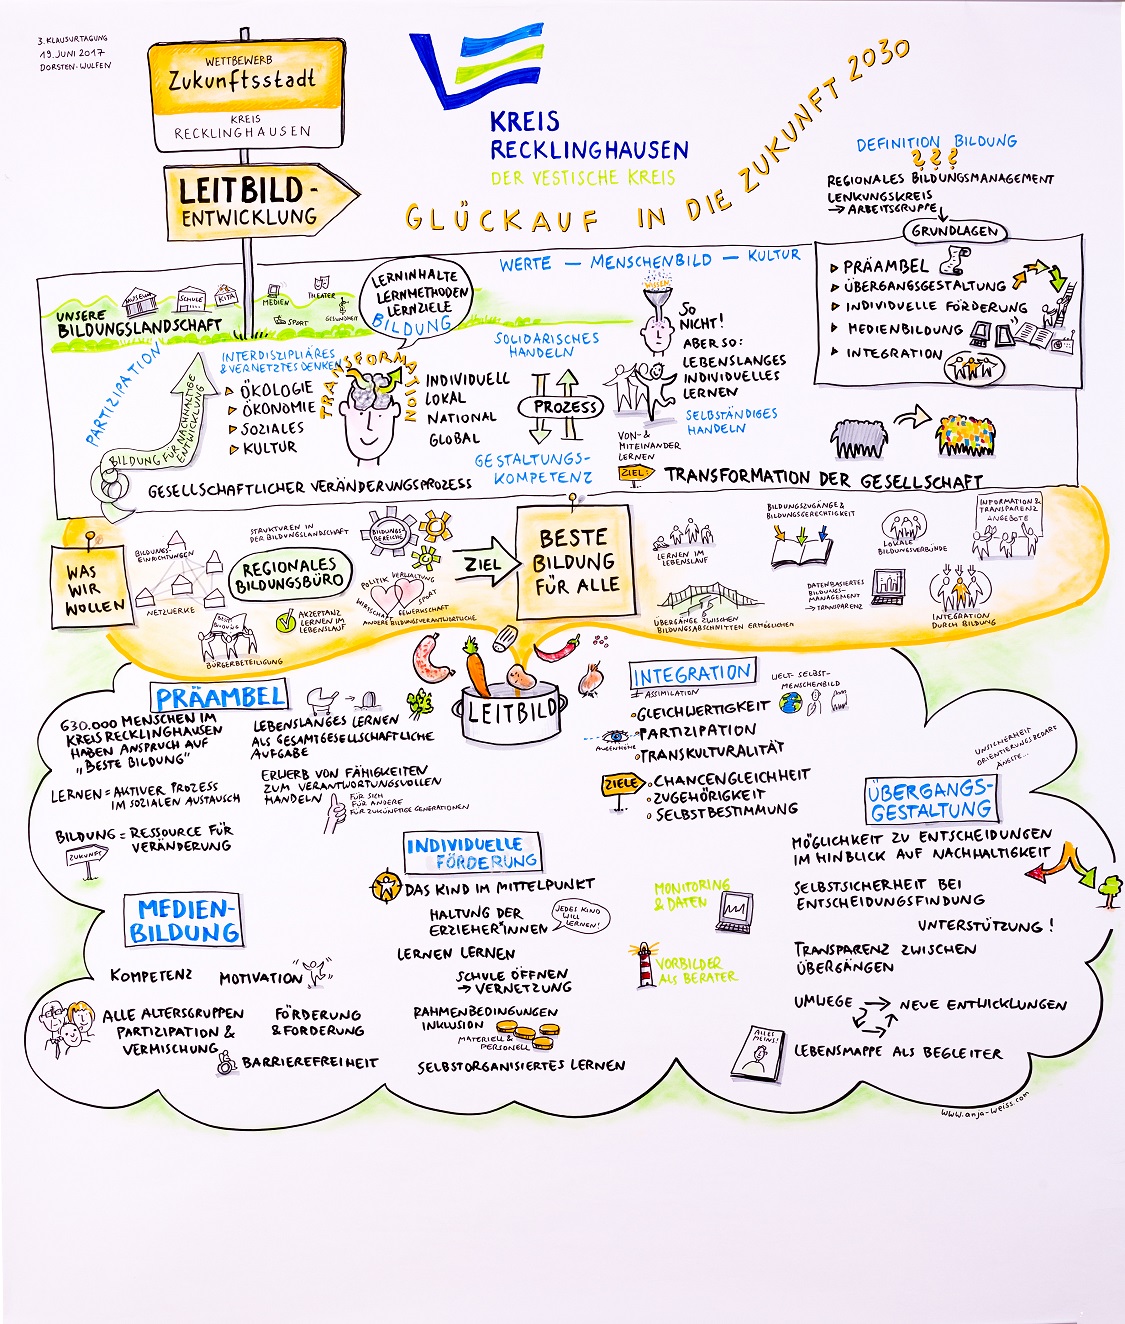 3. KLAUSURTAGUNG
19. JUNI 2017
DORSTEN-WULFEN
WETTBEWERB
Zukunftsstadt
KREIS
RECKLINGHAUSEN
LEITBILD-
ENTWICKLUNG
KREIS
RECKLINGHAUSEN
DER VESTISCHE KREIS
GLÜCKAUF IN DIE ZUKUNFT 2030
DEFINITION BILDUNG
? ? ?
REGIONALES BILDUNGSMANAGEMENT
LENKUNGSKREIS
→ ARBEITSGRUPPE
GRUNDLAGEN
PRÄAMBEL
ÜBERGANGSGESTALTUNG
INDIVIDUELLE FÖRDERUNG
MEDIENBILDUNG
INTEGRATION
WERTE — MENSCHENBILD — KULTUR
MUSEUM
SCHULE
KITA
MEDIEN
THEATER
SPORT
GESUNDHEIT
UNSERE
BILDUNGSLANDSCHAFT
LERNINHALTE
LERNMETHODEN
LERNZIELE
BILDUNG
PARTIZIPATION
BILDUNG FÜR NACHHALTIGE
ENTWICKLUNG
INTERDISZIPLIÄRES
& VERNETZTES DENKEN
ÖKOLOGIE
ÖKONOMIE
SOZIALES
KULTUR
TRANSFORMATION
INDIVIDUELL
LOKAL
NATIONAL
GLOBAL
SOLIDARISCHES
HANDELN
PROZESS
GESTALTUNGS-
KOMPETENZ
WISSEN
SO
NICHT!
ABER SO:
LEBENSLANGES
INDIVIDUELLES
LERNEN
SELBSTÄNDIGES
HANDELN
VON- &
MITEINANDER
LERNEN
GESELLSCHAFTLICHER VERÄNDERUNGSPROZESS
ZIEL:
TRANSFORMATION DER GESELLSCHAFT
WAS
WIR
WOLLEN
BILDUNGS-
EINRICHTUNGEN
NETZWERKE
STRUKTUREN IN
DER BILDUNGSLANDSCHAFT
REGIONALES
BILDUNGSBÜRO
BILDUNGS-
BEREICHE
POLITIK
VERWALTUNG
SPORT
WIRTSCHAFT
GEWERKSCHAFT
ANDERE BILDUNGSVERANTWORTLICHE
BÜRGERBETEILIGUNG
AKZEPTANZ
LERNEN IM
LEBENSLAUF
ZIEL
BESTE
BILDUNG
FÜR ALLE
LERNEN IM
LEBENSLAUF
BILDUNGSZUGÄNGE &
BILDUNGSGERECHTIGKEIT
LOKALE
BILDUNGSVERBÜNDE
INFORMATION &
TRANSPARENZ
ANGEBOTE
ÜBERGÄNGE ZWISCHEN
BILDUNGSABSCHNITTEN ERMÖGLICHEN
DATENBASIERTES
BILDUNGS-
MANAGEMENT
→ TRANSPARENZ
INTEGRATION
DURCH BILDUNG
LEITBILD
PRÄAMBEL
630.000 MENSCHEN IM
KREIS RECKLINGHAUSEN
HABEN ANSPRUCH AUF
„BESTE BILDUNG"
LERNEN = AKTIVER PROZESS
IM SOZIALEN AUSTAUSCH
BILDUNG = RESSOURCE FÜR
VERÄNDERUNG
ZUKUNFT
LEBENSLANGES LERNEN
ALS GESAMTGESELLSCHAFTLICHE
AUFGABE
ERWERB VON FÄHIGKEITEN
ZUM VERANTWORTUNGSVOLLEN
HANDELN
FÜR SICH
FÜR ANDERE
FÜR ZUKÜNFTIGE GENERATIONEN
INTEGRATION
≠ ASSIMILATION
GLEICHWERTIGKEIT
PARTIZIPATION
TRANSKULTURALITÄT
AUGENHÖHE
WELT- SELBST-
MENSCHENBILD
ZIELE
CHANCENGLEICHHEIT
ZUGEHÖRIGKEIT
SELBSTBESTIMMUNG
UNSICHERHEIT
ORIENTIERUNGSBEDARF
ÄNGSTE...
ÜBERGANGS-
GESTALTUNG
MÖGLICHKEIT ZU ENTSCHEIDUNGEN
IM HINBLICK AUF NACHHALTIGKEIT
SELBSTSICHERHEIT BEI
ENTSCHEIDUNGSFINDUNG
UNTERSTÜTZUNG!
TRANSPARENZ ZWISCHEN
ÜBERGÄNGEN
UMWEGE → NEUE ENTWICKLUNGEN
ALLES
MEINS!
LEBENSMAPPE ALS BEGLEITER
INDIVIDUELLE
FÖRDERUNG
DAS KIND IM MITTELPUNKT
HALTUNG DER
ERZIEHER*INNEN
JEDES KIND
WILL
LERNEN!
LERNEN LERNEN
SCHULE ÖFFNEN
→ VERNETZUNG
RAHMENBEDINGUNGEN
INKLUSION
MATERIELL &
PERSONELL
SELBSTORGANISIERTES LERNEN
MONITORING
& DATEN
VORBILDER
ALS BERATER
MEDIEN-
BILDUNG
KOMPETENZ
MOTIVATION
ALLE ALTERSGRUPPEN
PARTIZIPATION &
VERMISCHUNG
FÖRDERUNG
& FORDERUNG
BARRIEREFREIHEIT
www.anja-weiss.com